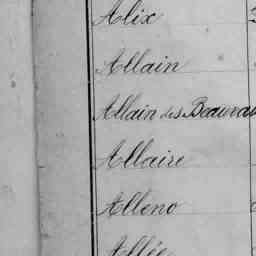 Alix
Allain
Allain des Beauvais
Allaire
Alleno
Allée